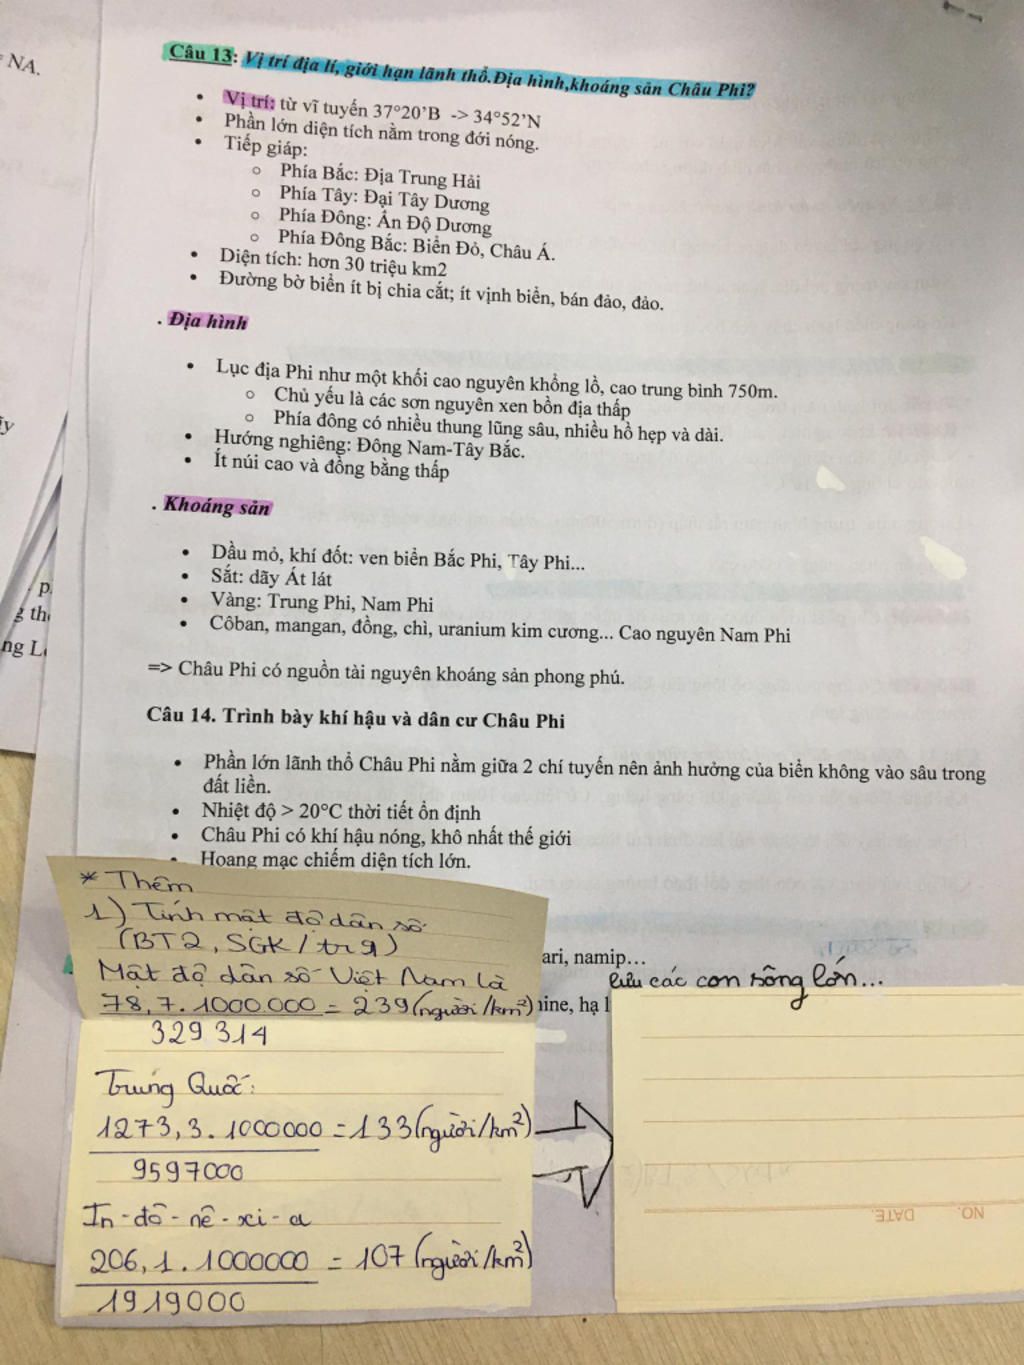 NA.
Câu 13: Vị trí địa lí, giới hạn lãnh thổ.Địa hình,khoáng sản Châu Phi?
• Vị trí: từ vĩ tuyến 37°20’B -> 34°52’N
• Phần lớn diện tích nằm trong đới nóng.
• Tiếp giáp:
o Phía Bắc: Địa Trung Hải
o Phía Tây: Đại Tây Dương
o Phía Đông: Ấn Độ Dương
o Phía Đông Bắc: Biển Đỏ, Châu Á.
• Diện tích: hơn 30 triệu km2
• Đường bờ biển ít bị chia cắt; ít vịnh biển, bán đảo, đảo.
. Địa hình
• Lục địa Phi như một khối cao nguyên khổng lồ, cao trung bình 750m.
o Chủ yếu là các sơn nguyên xen bồn địa thấp
o Phía đông có nhiều thung lũng sâu, nhiều hồ hẹp và dài.
• Hướng nghiêng: Đông Nam-Tây Bắc.
• Ít núi cao và đồng bằng thấp
. Khoáng sản
• Dầu mỏ, khí đốt: ven biển Bắc Phi, Tây Phi...
• Sắt: dãy Át lát
• Vàng: Trung Phi, Nam Phi
• Côban, mangan, đồng, chì, uranium kim cương... Cao nguyên Nam Phi
=> Châu Phi có nguồn tài nguyên khoáng sản phong phú.
Câu 14. Trình bày khí hậu và dân cư Châu Phi
• Phần lớn lãnh thổ Châu Phi nằm giữa 2 chí tuyến nên ảnh hưởng của biển không vào sâu trong
đất liền.
• Nhiệt độ > 20°C thời tiết ổn định
• Châu Phi có khí hậu nóng, khô nhất thế giới
• Hoang mạc chiếm diện tích lớn.
* Thêm
1) Tính mật độ dân số
(BT2, SGK/tr9)
Mật độ dân số Việt Nam là
78,7.1000.000 = 239(người/km²)
329314
Trung Quốc:
1273,3.1000000 = 133(người/km²)
9597000
In-đô-nê-xi-a
206,1.1000000 = 107(người/km²)
1919000
ari, namip...
lưu các con sông lớn...
ine, hạ l
NO. DATE.